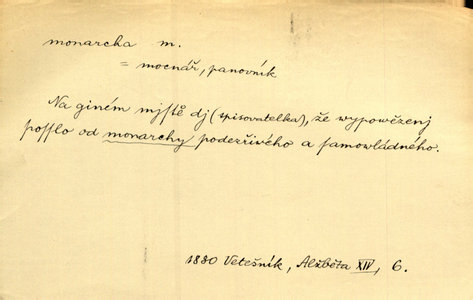 monarcha m.
= mocnář, panovník
Na giném mjstě dj (spisovatelka), že wypowězenj
pošlo od monarchy podezřivého a samowládného.
1880 Vetešník, Alžběta XIV, 6.